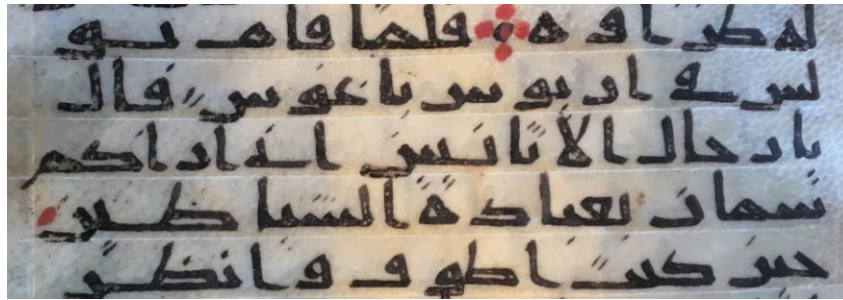 له طراوه فلما قام بو
لس في اريوس باغوس قال
يا رجال الاثانس اني اراكم
بعبادة الشياطين
حين كنت اطوف وانظر